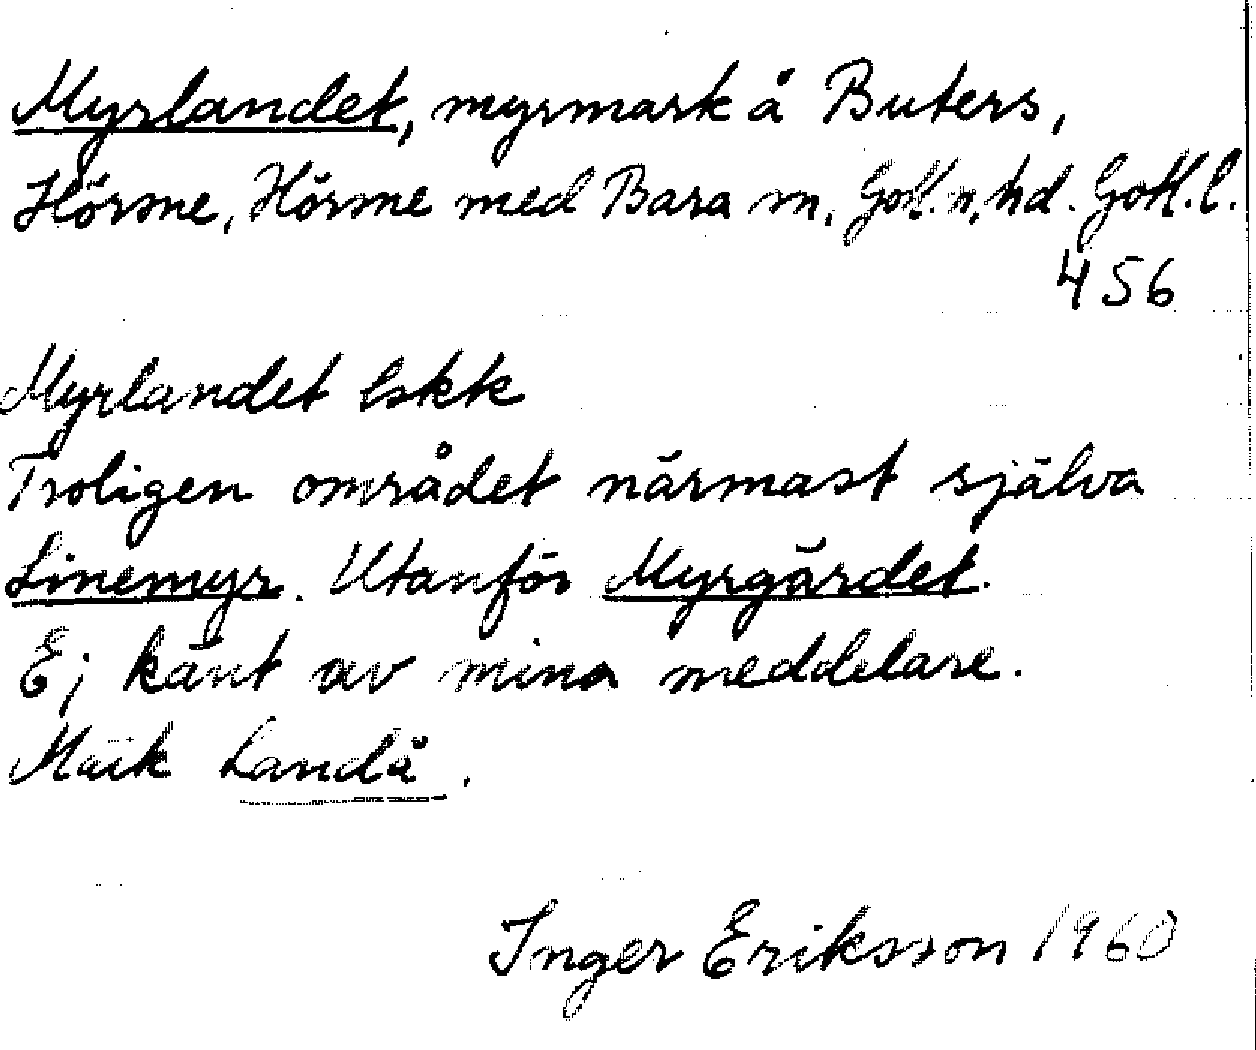 Myrlandet, myrmark å Buters,
Hörsne, Hörsne med Bara sn, Gotl.n.hd. Gotl.l.
456
Myrlandet lskk
Troligen området närmast själva
Linemyr. Utanför Myrgärdet.
Ej känt av mina meddelare.
Märk Landå.
Inger Eriksson 1960